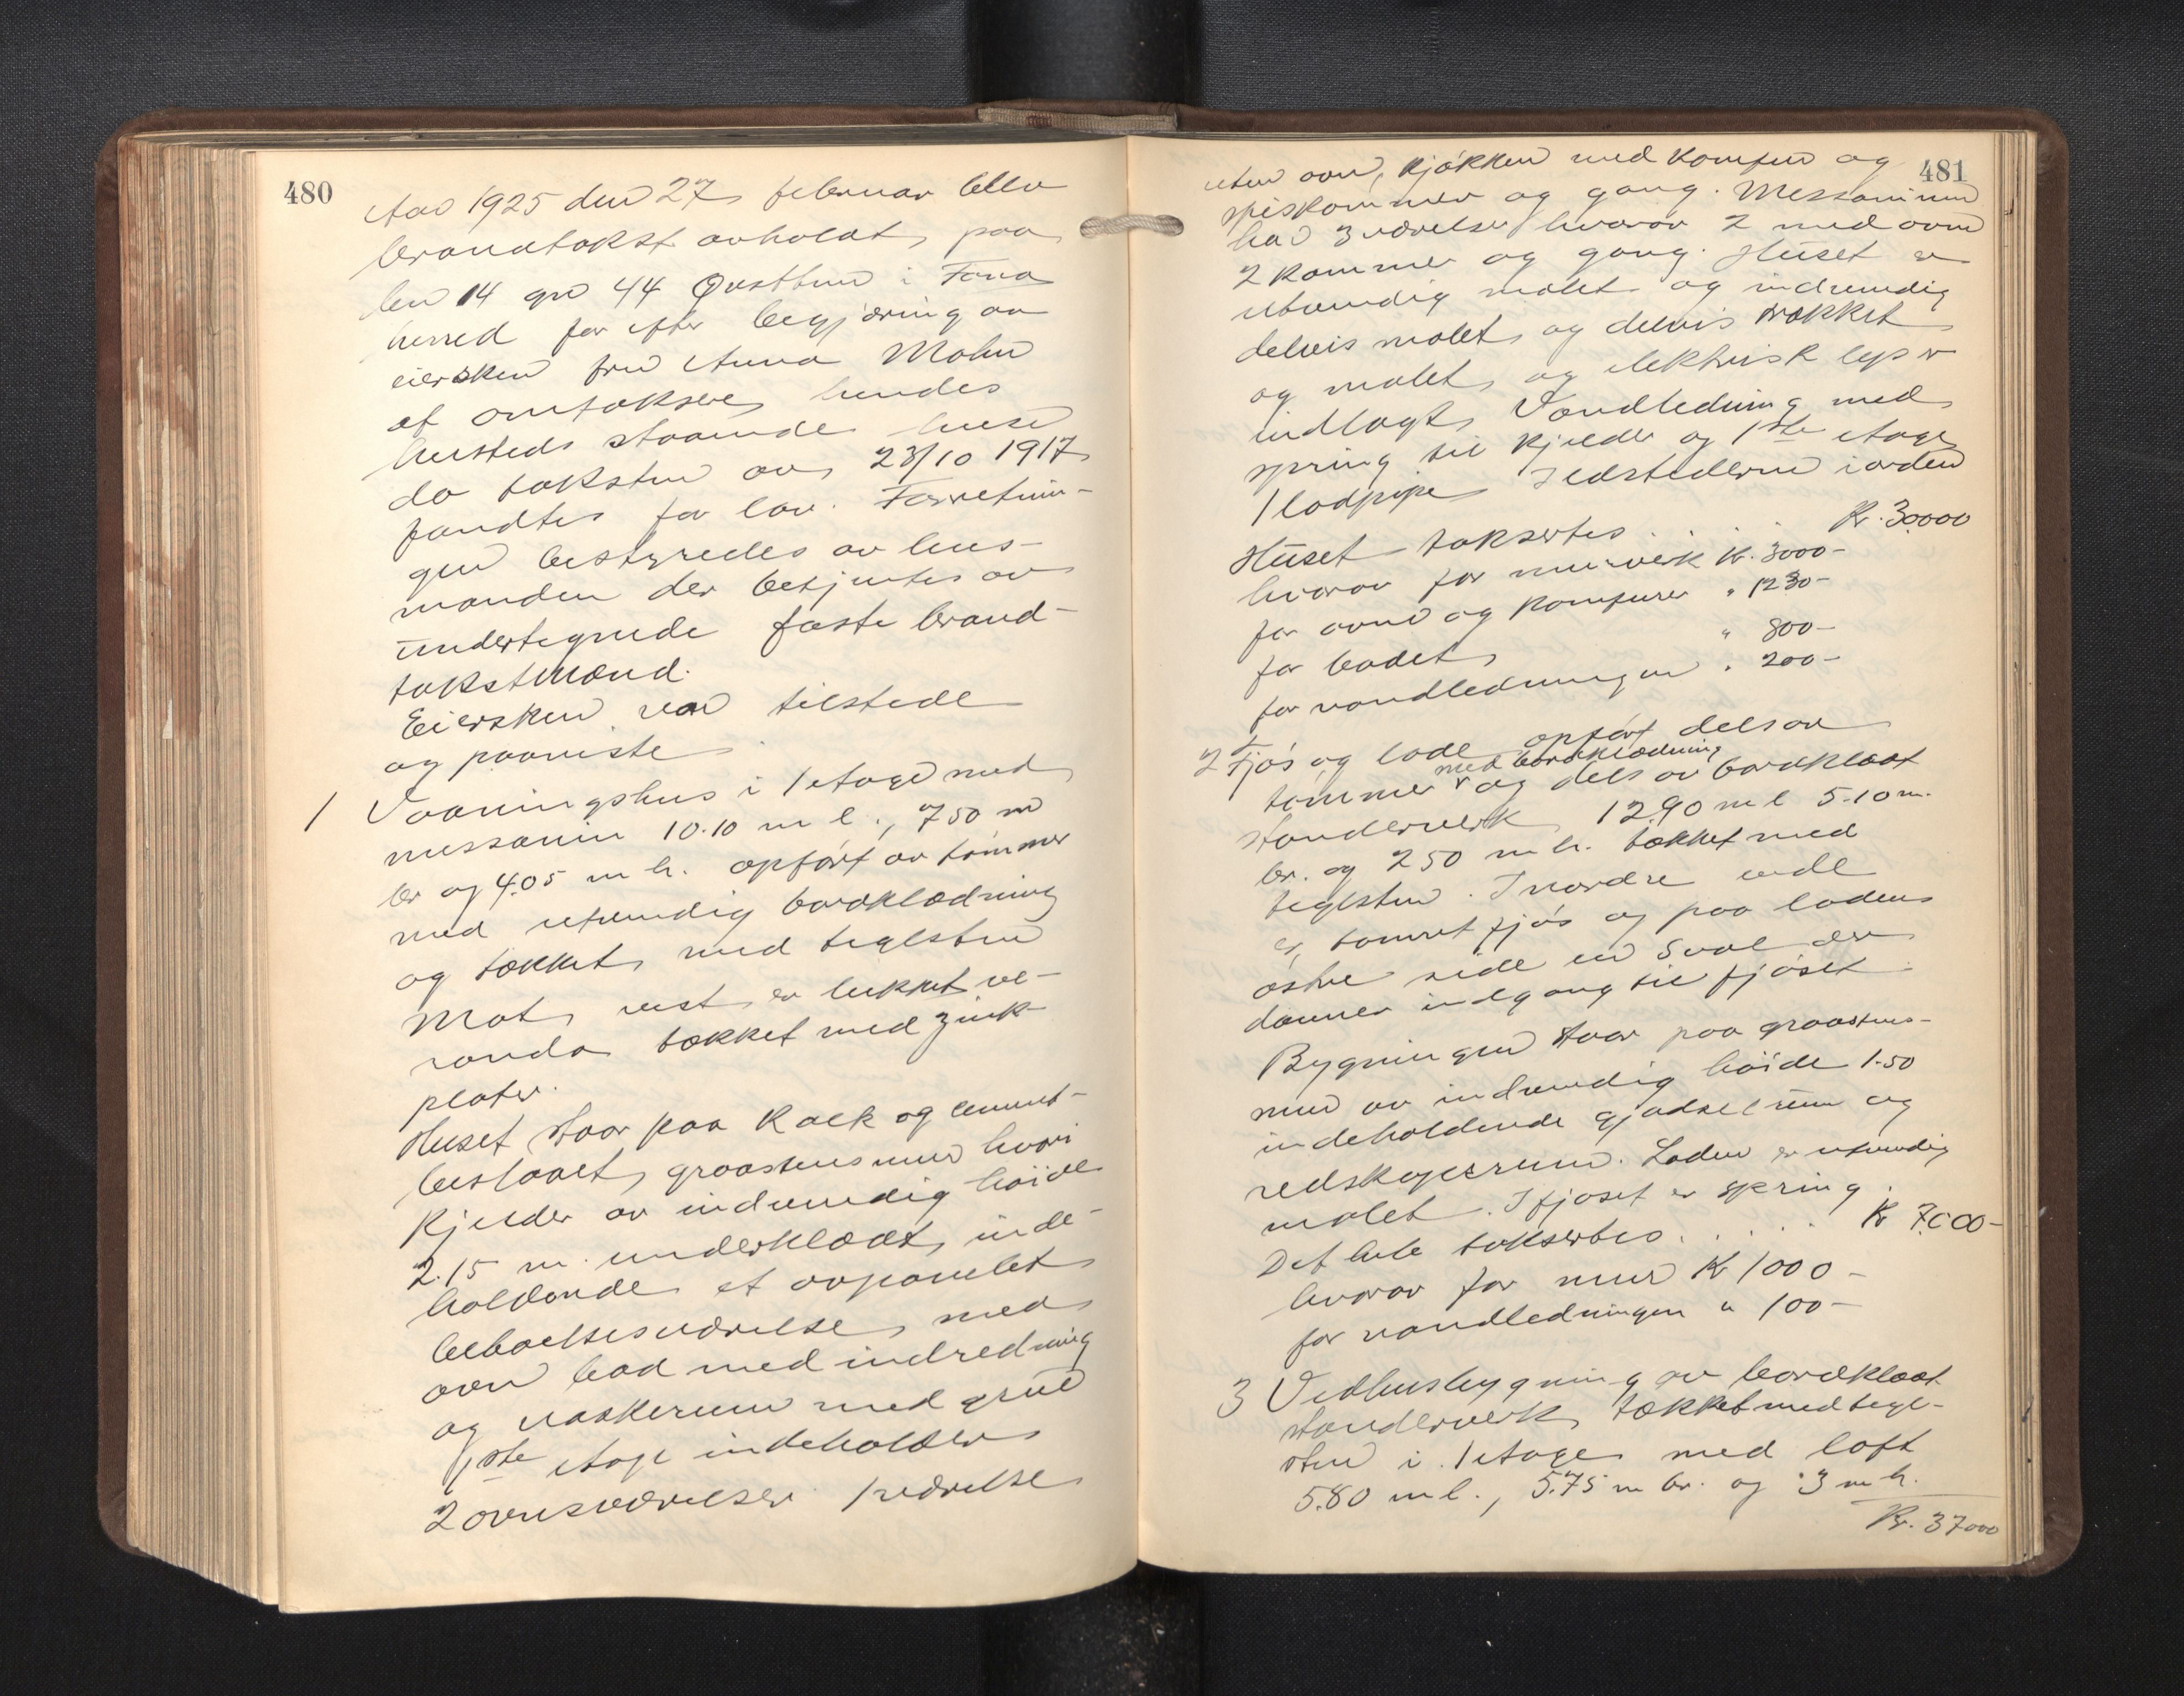 480
Aar 1925 den 27 februar blev
brandtakst avholdt paa
bn 14 gn 44 Øvsttun i Fana
herred for efter begjæring av
eiersken fru Anna Mohn
at omtaksere hendes
hersteds staaende huse
da taksten av 23/10 1917
fandtes for lav. Forretnin-
gen bestyredes av lens-
manden der betjentes av
undertegnede faste brand-
takstmænd.
Eiersken var tilstede
og paaviste
1 Vaaningshus i 1 etage med
messanin 10.10 m l., 750 m
br og 4.05 m h. opført av tømmer
med utvendig bordklædning
og tækket med teglsten
Mot vest er lukket ve-
randa tækket med zink-
plater.
Huset staar paa Kalk og cement-
beslaaet graastensmur hvori
Kjelder av indvendig høide
2.15 m. underklædt, inde-
holdende et avpanelet
beboelsesværelse med
ovn bad med indredning
og vaskerum med grue
1ste etage indeholder
2 ovnsværelser 1 værelse
481
uten ovn, kjøkken med komfur og
spiskammer og gang. Messaninen
har 3 værelser hvorav 2 med ovne
2 kammer og gang. Huset er
utvendig malet og indvendig
delvis malet og delvis trækket
og malet og elektrisk lys er
indlagt. Vandledning med
spring til kjelder og 1ste etage
1 lodpipe Ildstederne i orden
Huset taksertes . . . Kr. 30000
hvorav for murverk Kr. 3000-
for ovne og komfurer " 1230-
for badet " 800-
for vandledningen " 200-
2 Fjøs og lade opført dels av
med bordklædning
tømmer og dels av bordklædt
standerverk 12.90 m l 5.10 m.
br. og 250 m h. tækket med
teglsten. I nordre ende
er tømret fjøs og paa ladens
østre side en Sval der
danner indgang til fjøset.
Bygningen staar paa graastens-
mur av indvendig høide 1.50
indeholdende gjødselrum og
redskapsrum. Laden er utvendig
malet. I fjøset er spring.
Det hele taksertes . . . . Kr 7000-
hvorav for mur Kr 1000-
for vandledningen " 100-
3 Vedhusbygning av bordklædt
standerverk tækket med tegl-
sten i 1 etage med loft
5.80 m l., 5.75 m br. og 3 m h.
Kr. 37000